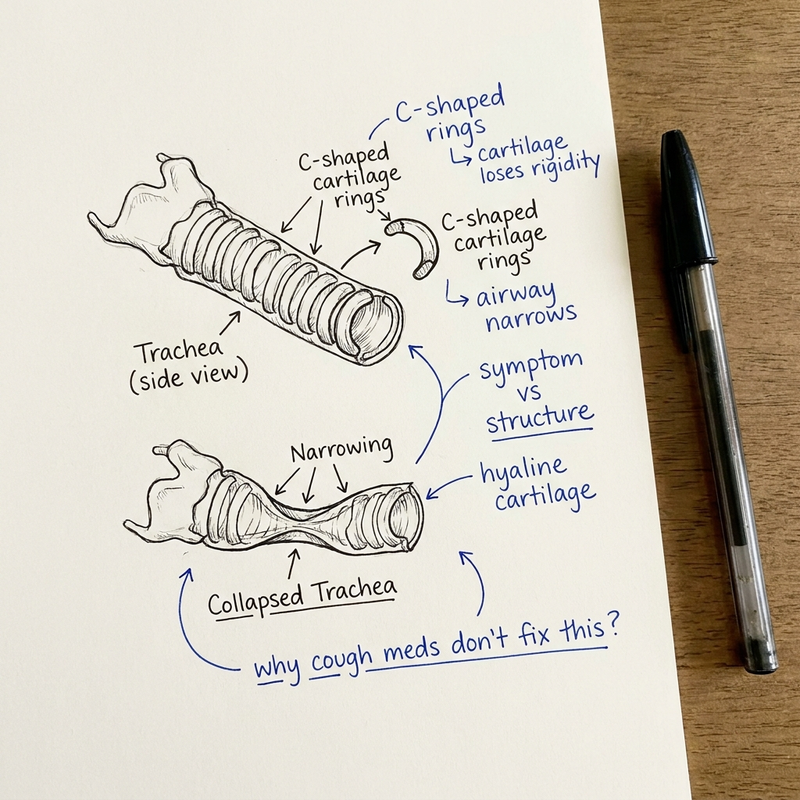 C-shaped
rings
cartilage
loses rigidity
C-shaped
cartilage
rings
C-shaped
cartilage
rings
airway
narrows
Trachea
(side view)
symptom
vs
structure
Narrowing
hyaline
cartilage
Collapsed Trachea
why cough meds don't fix this?